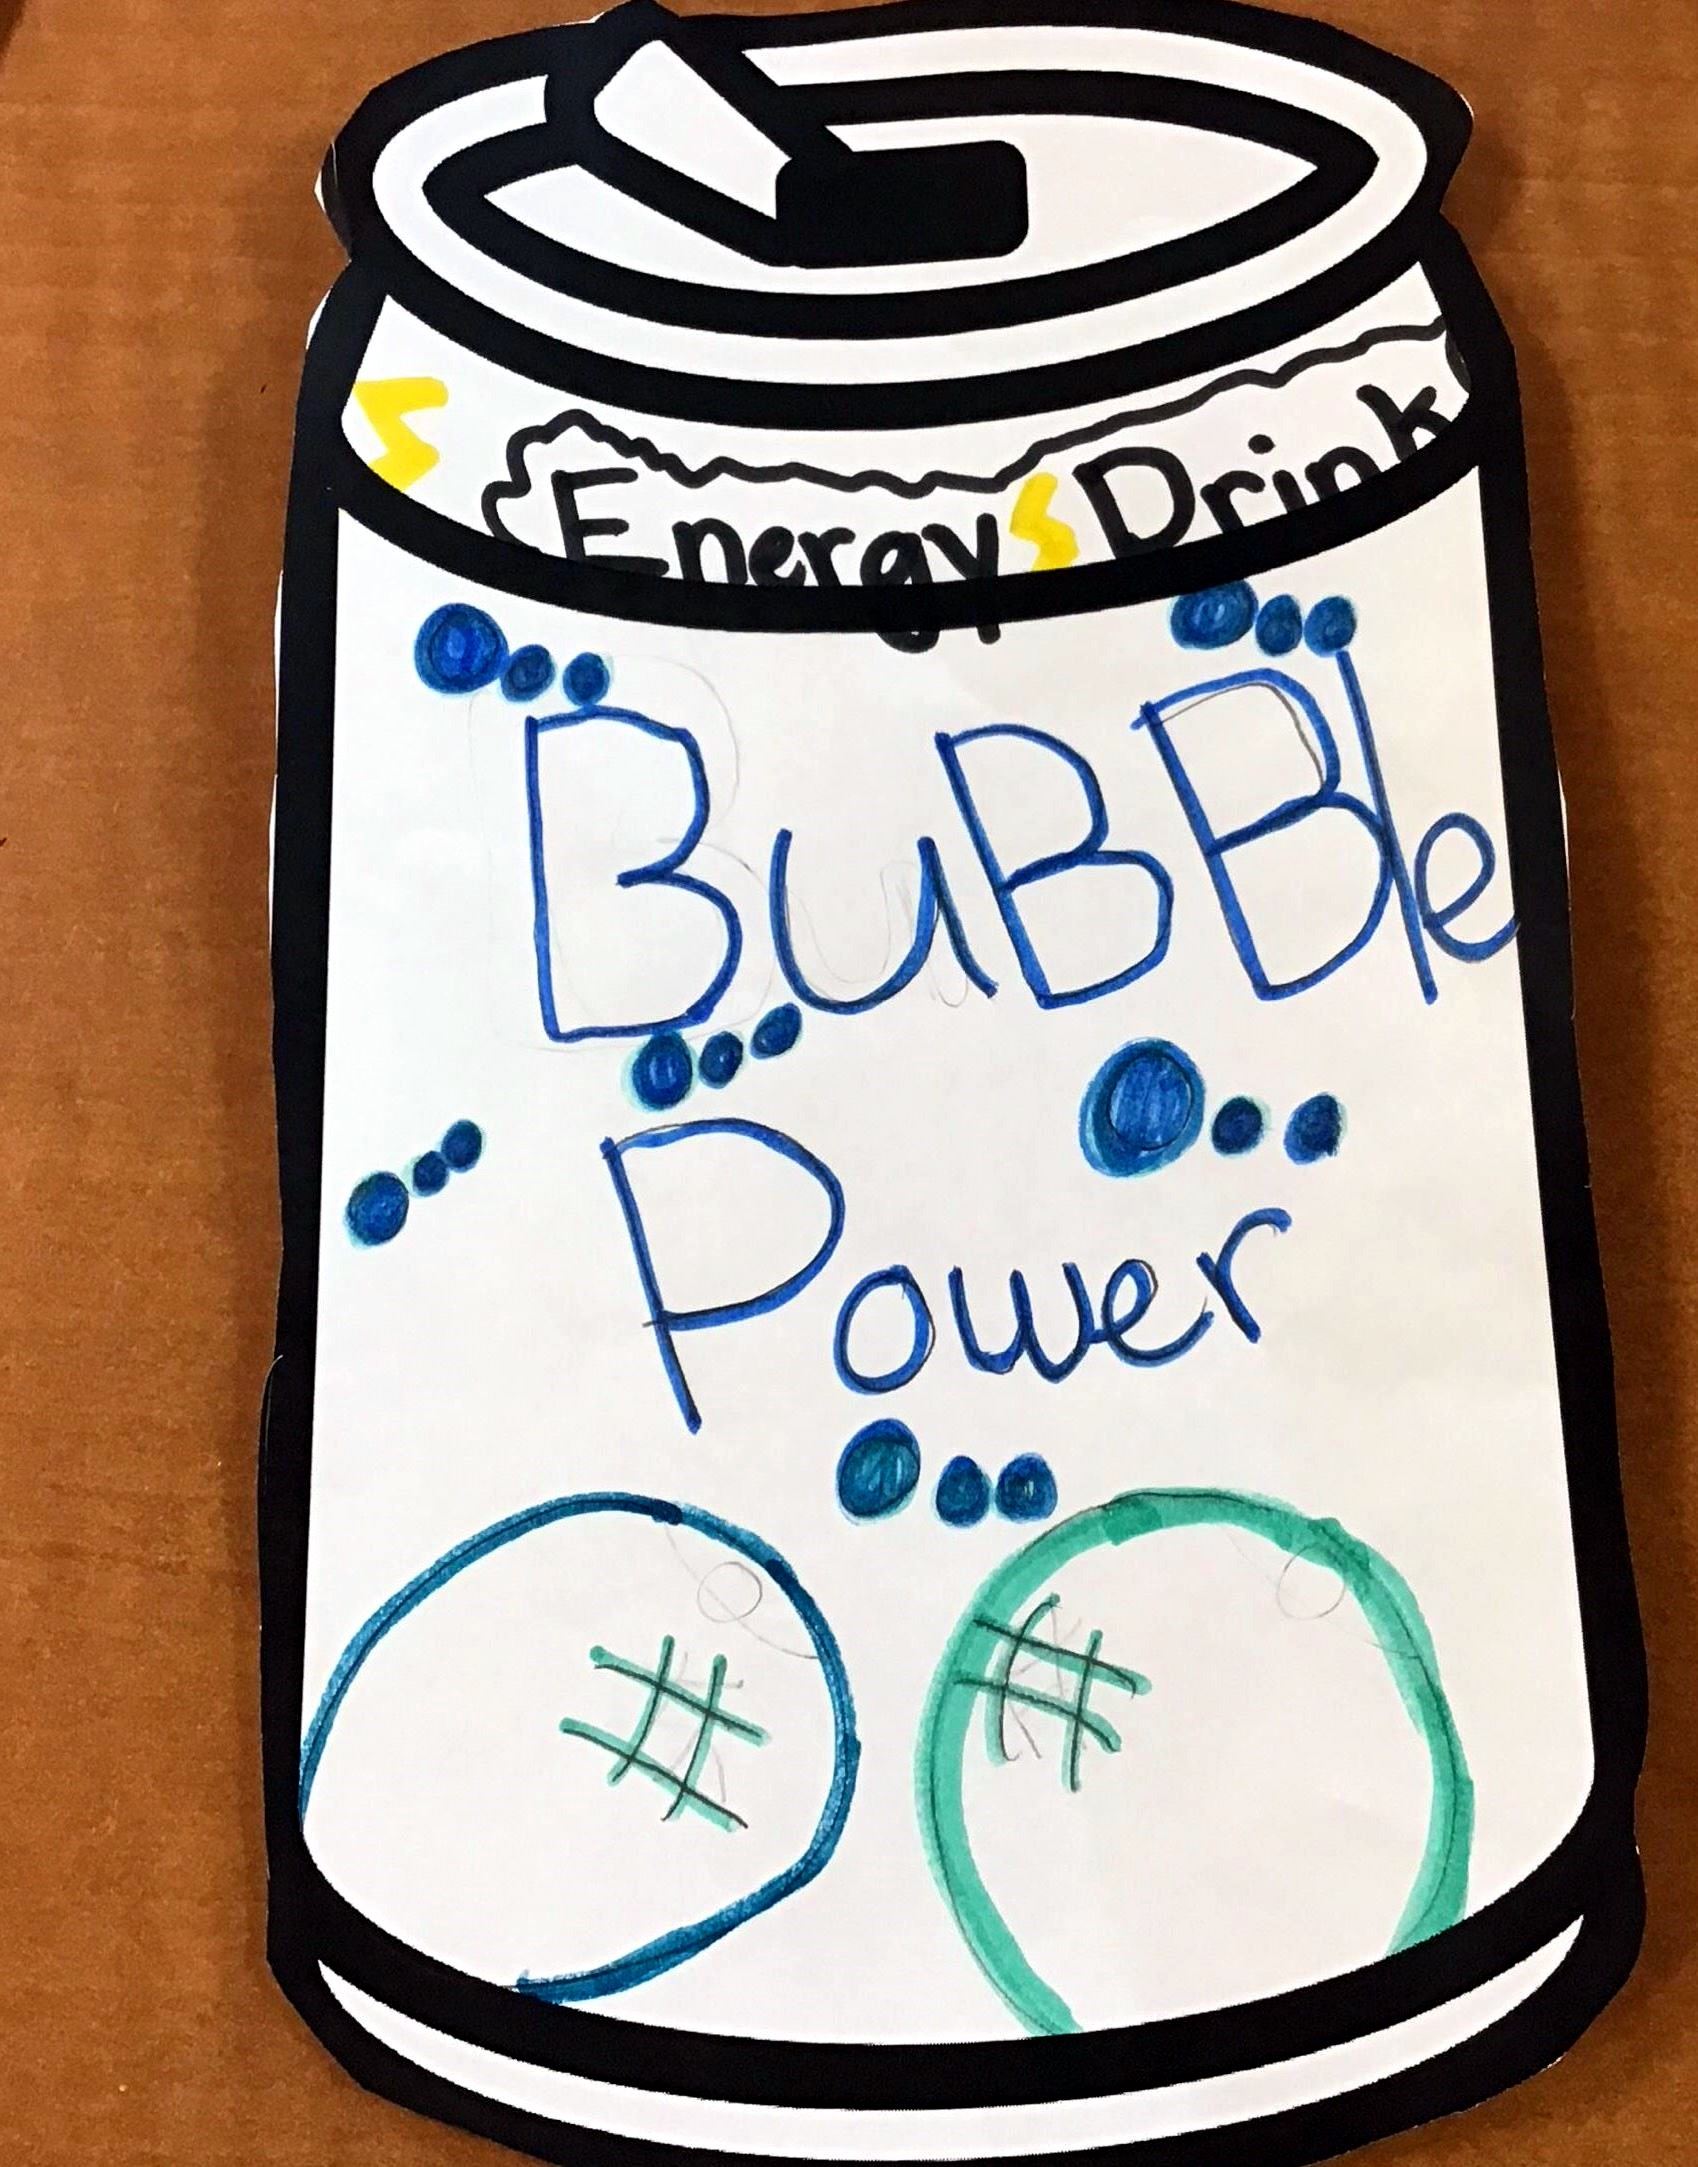 Energy Drink
BuBBle
Power
# #